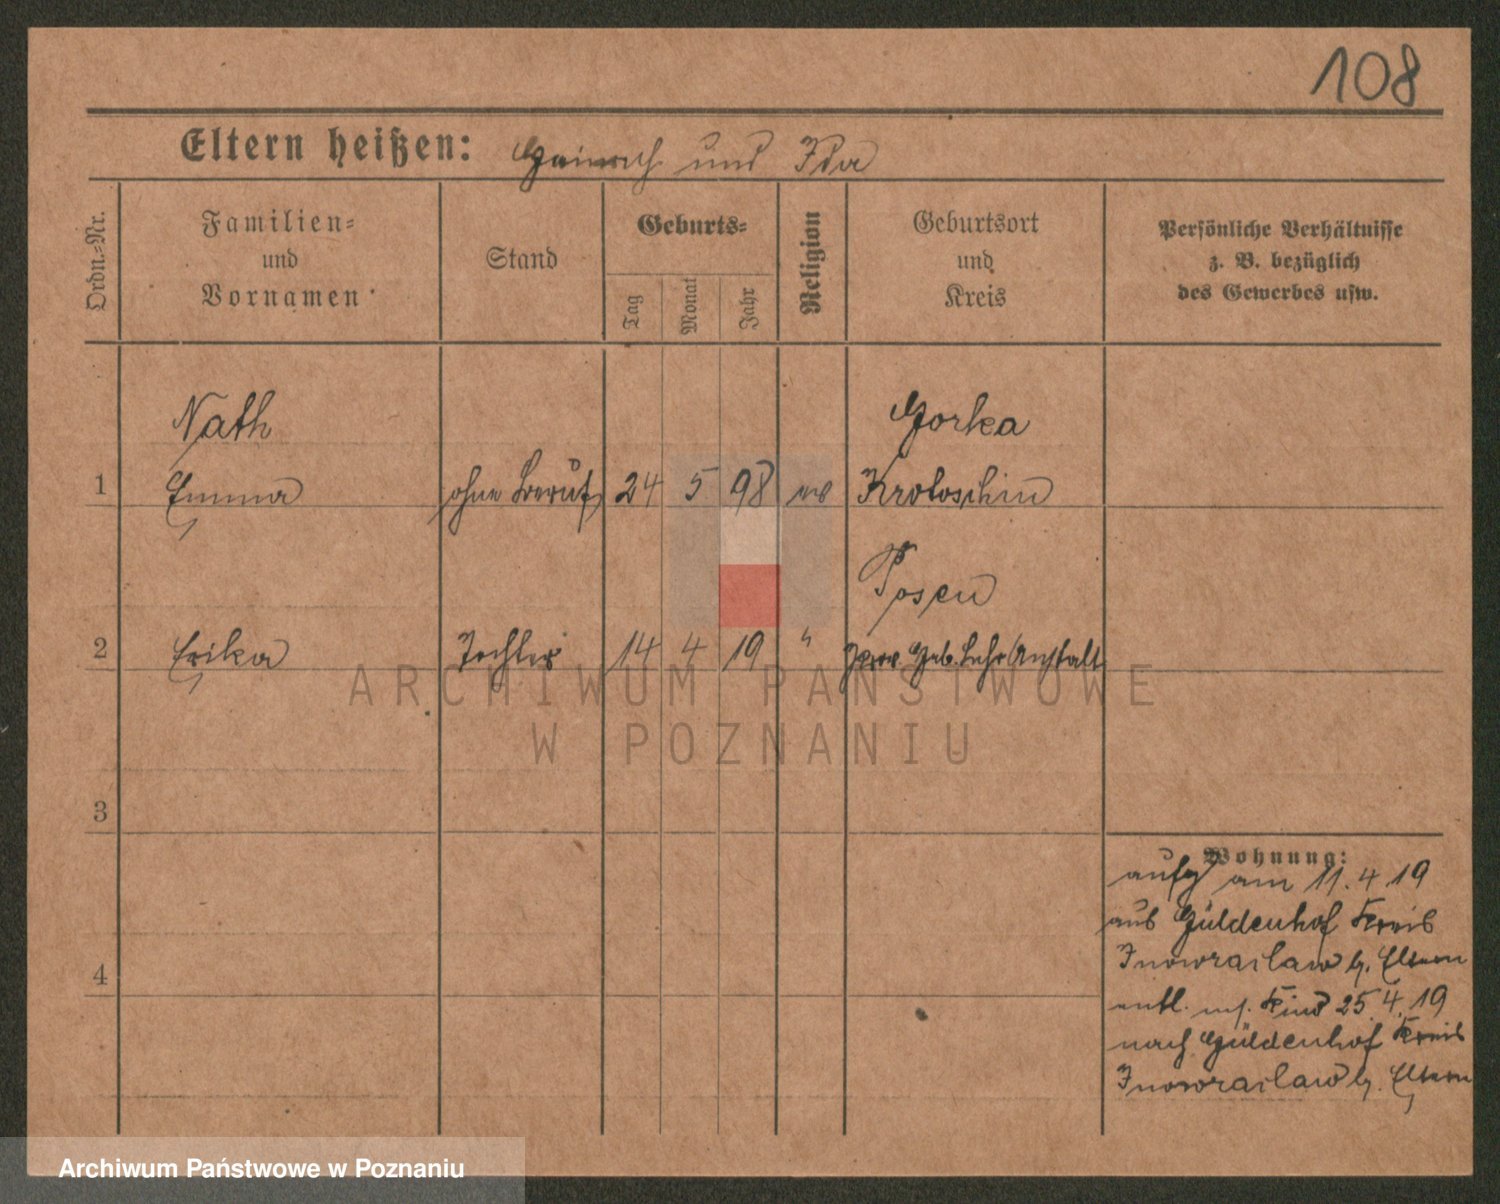 108
Eltern heißen: Heinrich und Ida
Ordn.-Nr.
Familien-
und
Vornamen
Stand
Geburts-
Tag
Monat
Jahr
Religion
Geburtsort
und
Kreis
Persönliche Verhältnisse
z. B. bezüglich
des Gewerbes usw.
Nath Gorka
1 Emma ohne Beruf 24 5 98 ev Krotoschin
Posen
2 Erika Tochter 14 4 19 " Prov. Heb. Lehr Anstalt
3
4
Wohnung:
aufg am 11.4.19
aus Güldenhof Kreis
Inowrazlaw b. Eltern
entl. m. Kind 25.4.19
nach Güldenhof Kreis
Inowrazlaw b. Eltern
ARCHIWUM PAŃSTWOWE
W POZNANIU
Archiwum Państwowe w Poznaniu